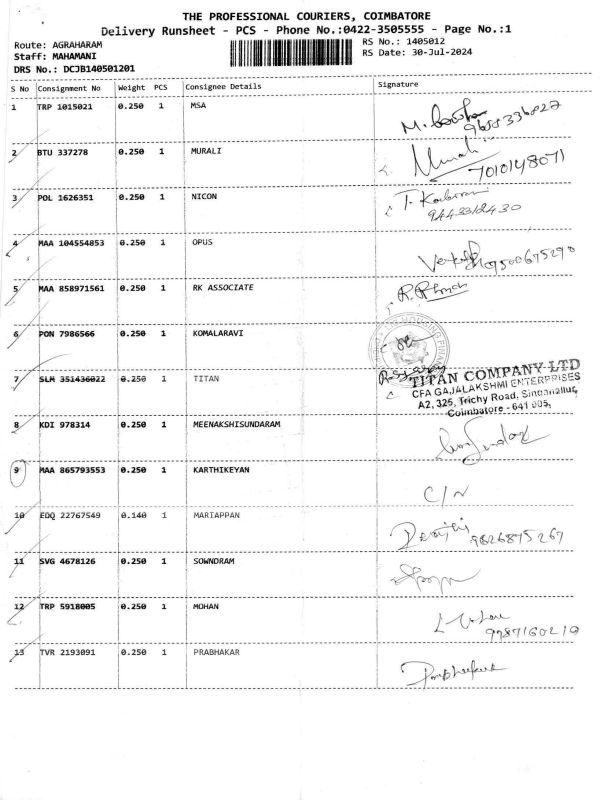 THE PROFESSIONAL COURIERS, COIMBATORE
Delivery Runsheet - PCS - Phone No.:0422-3505555 - Page No.:1
Route: AGRAHARAM RS No.: 1405012
Staff: MAHAMANI RS Date: 30-Jul-2024
DRS No.: DCJB140501201
S No Consignment No Weight PCS Consignee Details Signature
1 TRP 1015021 0.250 1 MSA
9688336827
2 BTU 337278 0.250 1 MURALI Murali
7010148071
3 POL 1626351 0.250 1 NICON
9443312430
4 MAA 104554853 0.250 1 OPUS
9500675290
5 MAA 858971561 0.250 1 RK ASSOCIATE
6 PON 7986566 0.250 1 KOMALARAVI
7 SLM 351436022 0.250 1 TITAN
TITAN COMPANY LTD
CFA GAJALAKSHMI ENTERPRISES
A2, 325, Trichy Road, Singanallur,
Coimbatore - 641 005,
8 KDI 978314 0.250 1 MEENAKSHISUNDARAM
9 MAA 865793553 0.250 1 KARTHIKEYAN
C/N
10 EDQ 22767549 0.140 1 MARIAPPAN
9826875267
11 SVG 4678126 0.250 1 SOWNDRAM
12 TRP 5918005 0.250 1 MOHAN
9987160210
13 TVR 2193091 0.250 1 PRABHAKAR
Prabhakar